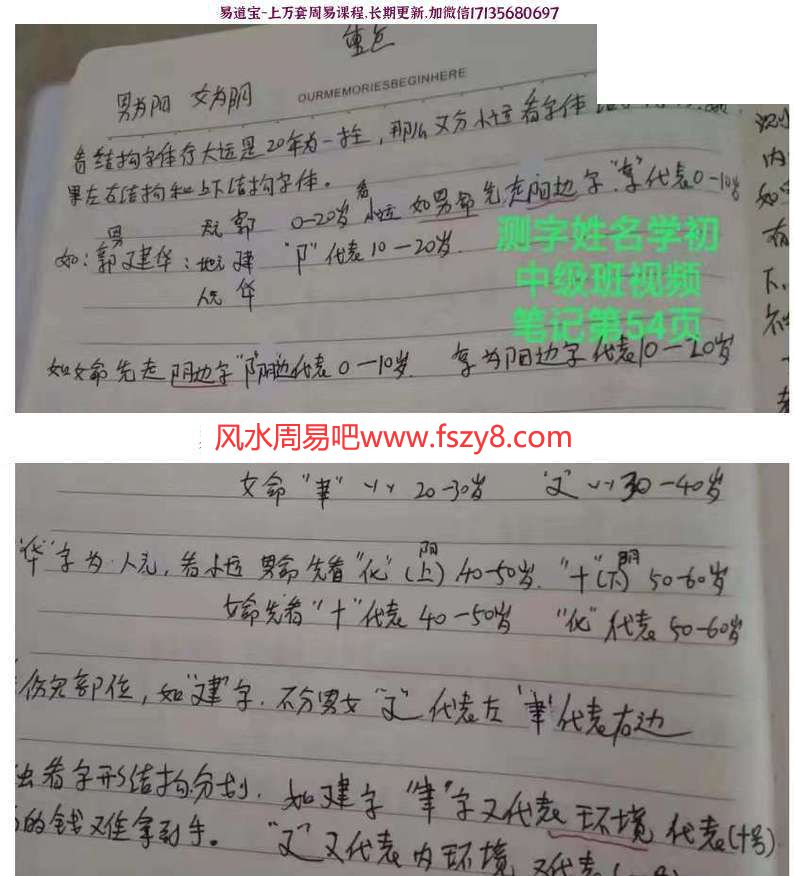 易道宝-上万套周易课程.长期更新.加微信17135680697
重点
男为阳 女为阴
OURMEMORIESBEGINHERE
看结构字体行大运是20年为一柱，那么又分小运看字体
果左右结构和上下结构字体。
男 天元 郭 0-20岁 看小运 如男命先走阳边字"享"代表0-10岁
如：郭建华：地元 建 "阝"代表10-20岁
人元 华
测字姓名学初
中级班视频
笔记第54页
如女命先走阴边字"阝"阴边代表0-10岁 享为阳边字代表10-20岁
风水周易吧www.fszy8.com
女命"聿" 20-30岁 "廴" 30-40岁
"华"字为人元，看小运 男命先看"化"(上)阳 40-50岁."十"(下)阴 50-60岁
女命先看"十"代表40-50岁 "化"代表50-60岁
伤灾部位，如"建"字.不分男女"廴"代表左"聿"代表右边
看字形结构分划.如建字"聿"字又代表环境 代表(十号)
的钱又难拿到手。"廴"又代表内环境
识
内
如
有
下.